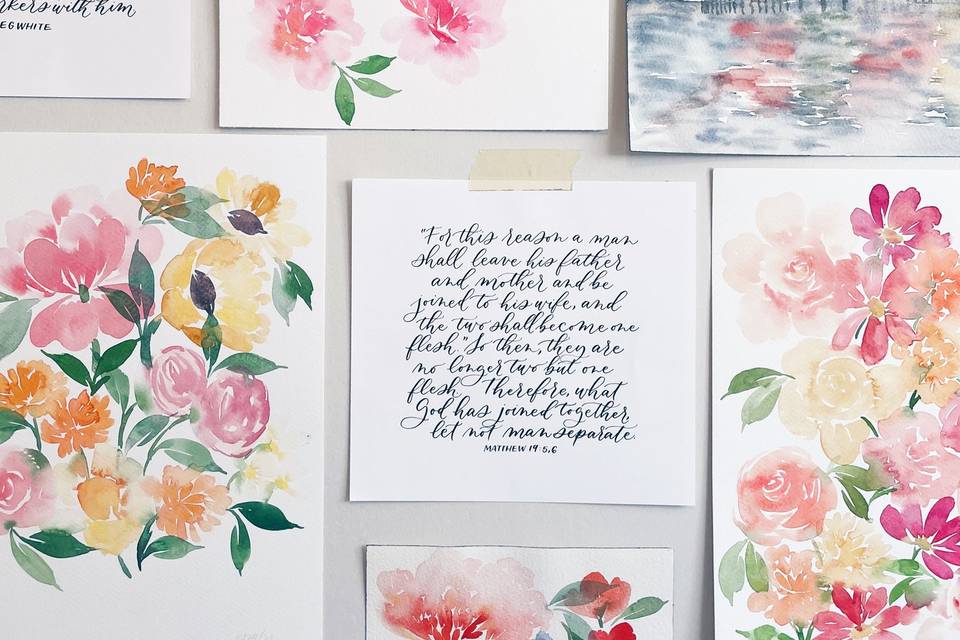 with him
"For this reason a man
shall leave his father
and mother and be
joined to his wife, and
the two shall become one
flesh." So then, they are
no longer two but one
flesh Therefore, what
God has joined together,
let not man separate.
MATTHEW 19:5,6